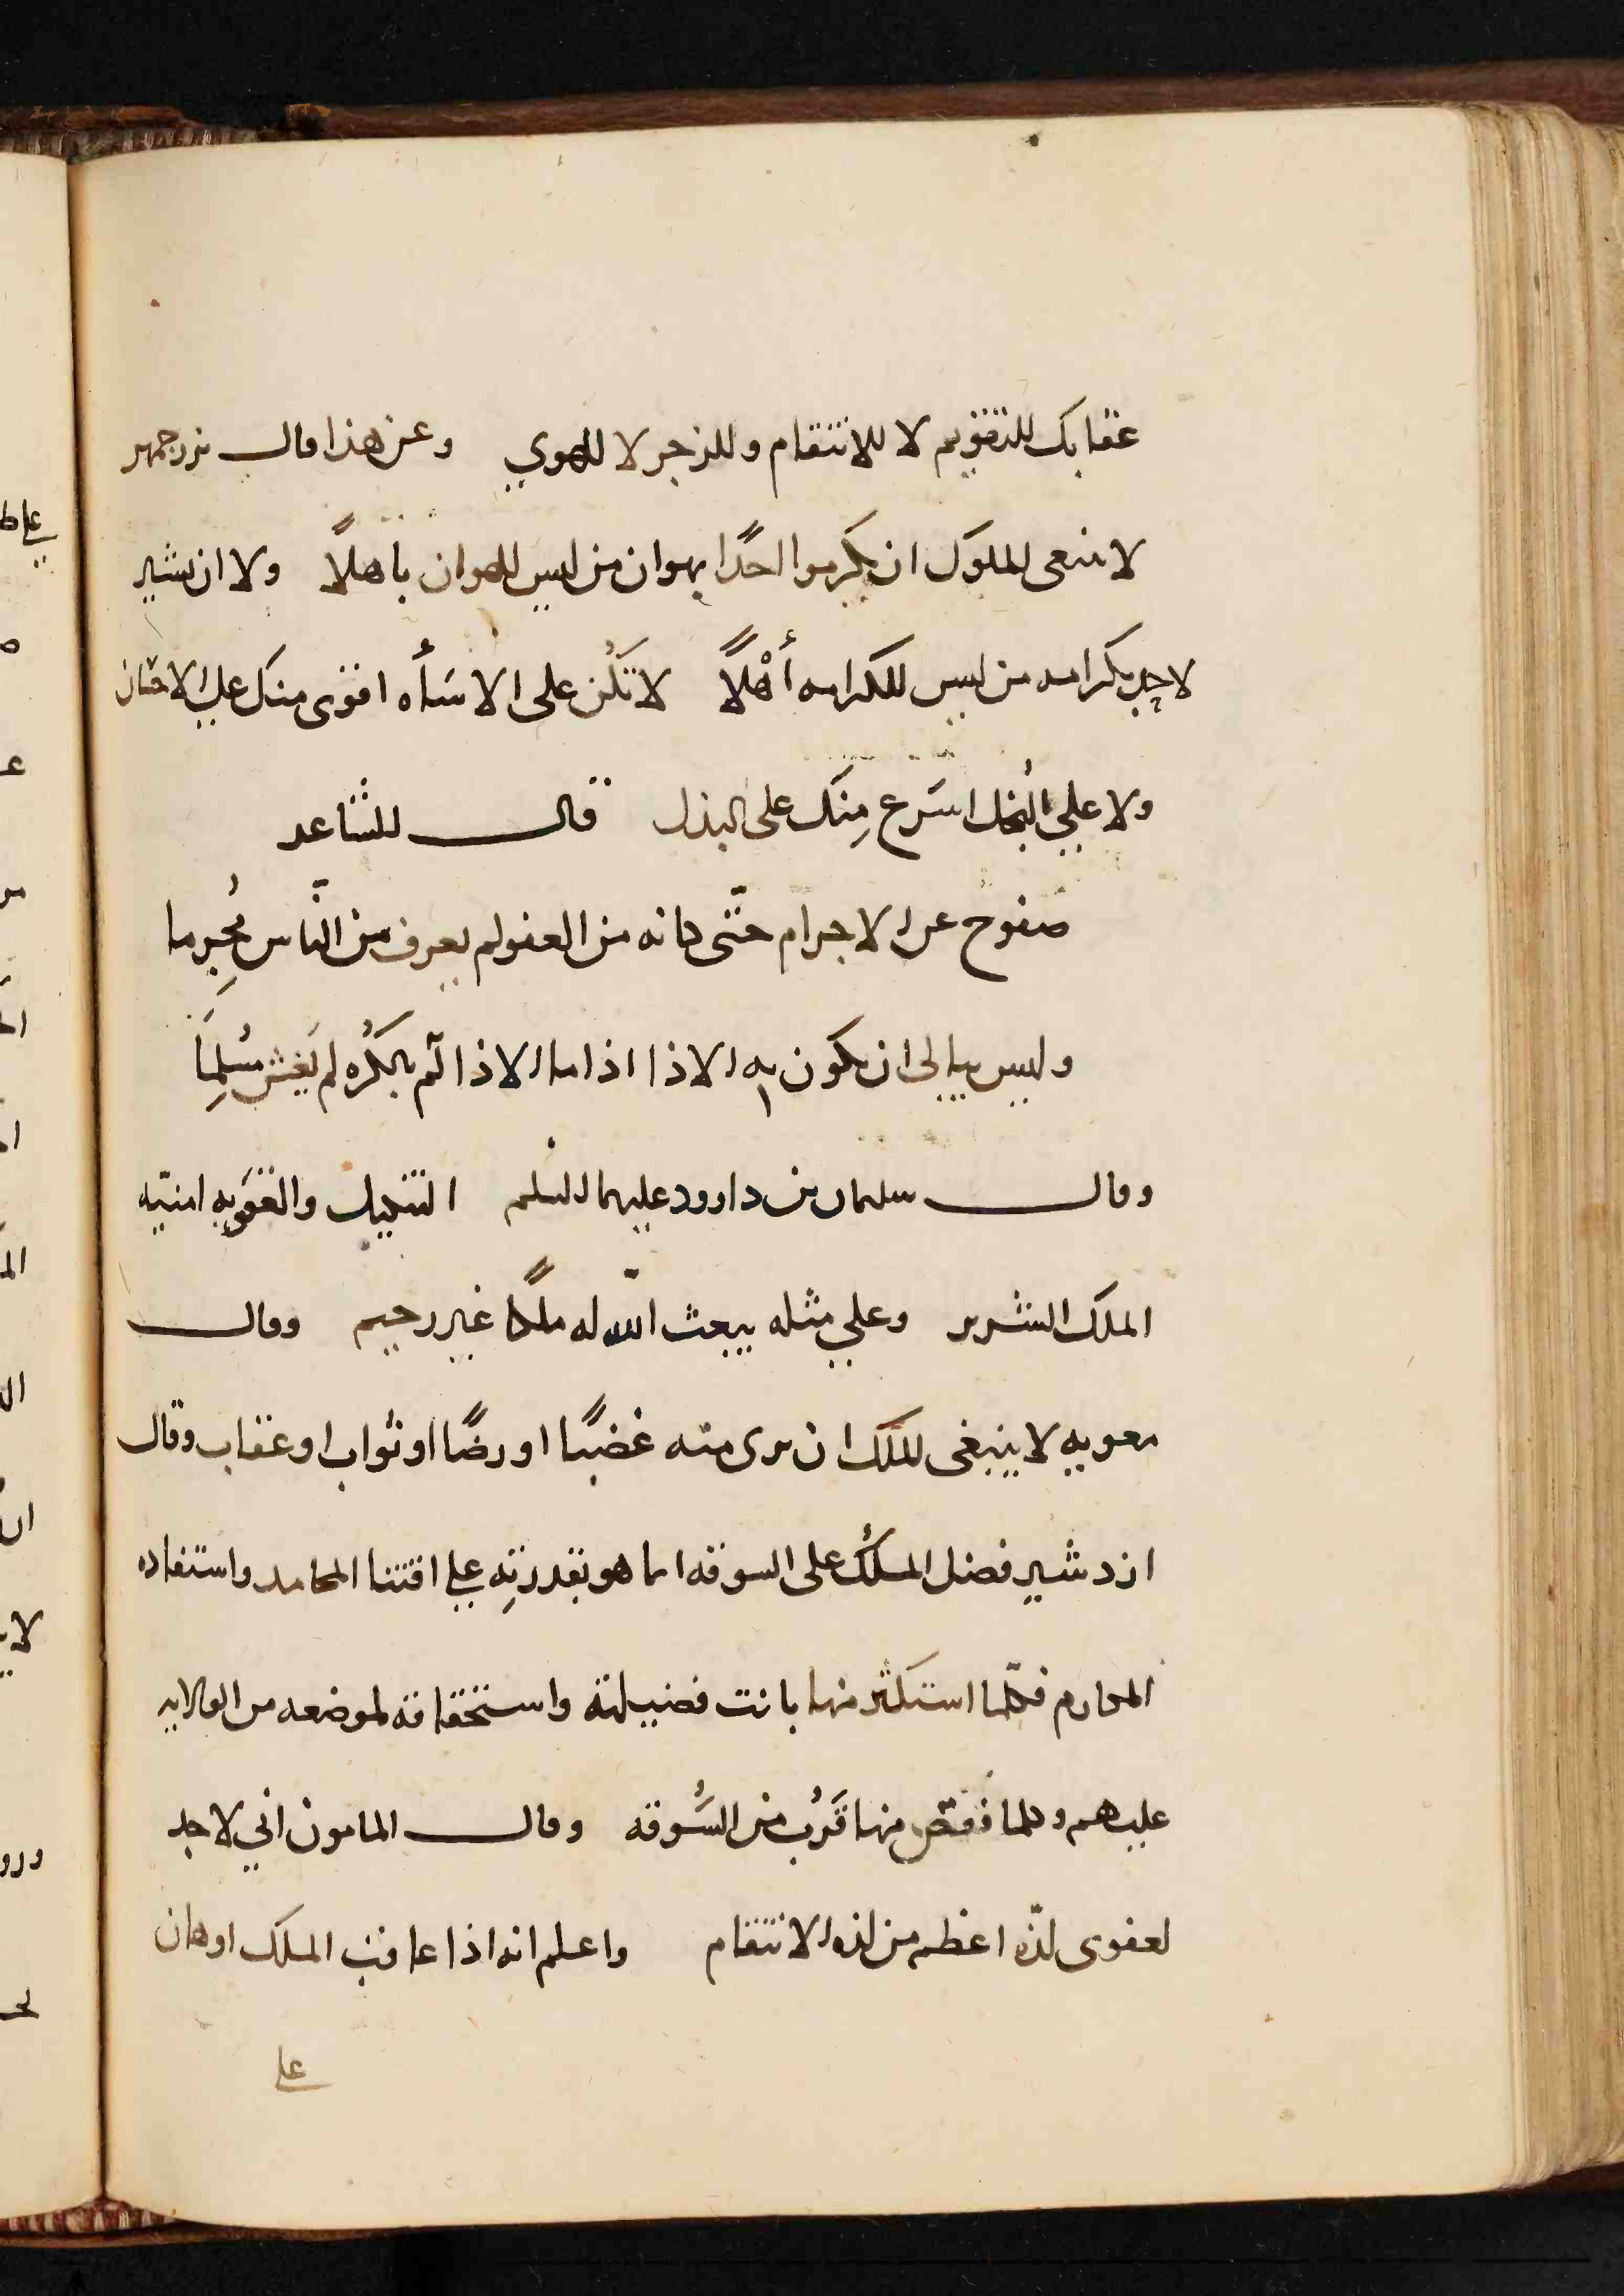 عقابك للتقويم لا للانتقام وللزجر لا للهوي وعن هذا قال بزرجمهر
لا ينبغى للملوك ان يكرموا احدًا بهوان من ليس للهوان باهلًا ولا ان يشير
لاحد بكرامه من ليس للكرامه أهْلًا لا تكن على الاسَأه اقوى منك علي الاحسان
ولا علي البُخل اسَرع مِنك على البذل قال الشاعر
صَفوح عن الاجرام حتّى كانه من العفو لم يعرف من النّاس مُجرِما
وليس يبالى ان يكون به الاذا اذا ما الاذا لم بالكُره لم يَغش مُسلِمَا
وقال سليمان بن داوود عليهما السلم التنكيل والعقوبه امنيّه
الملك الشرير وعلي مثله يبعث اللّه له ملكًا غير رحيم وقال
معويه لا ينبغى للملك ان يرى منه غضبًا او رضًا او ثواب او عقاب وقال
ازدشير فضل الملك على السوقه انما هو بقدرتِه علي اقتنا المحامد واستفاده
المكارم فكلّما استكثر منها بانت فضيلته واستحقاقه لموضعه من الولايه
عليهم وكلما نقص منها قرُب من السُّوقه وقال المامون اني لاجد
لعفوى لذّه اعظم من لذه الانتقام واعلم انه اذا عاقب الملك او هان
علي